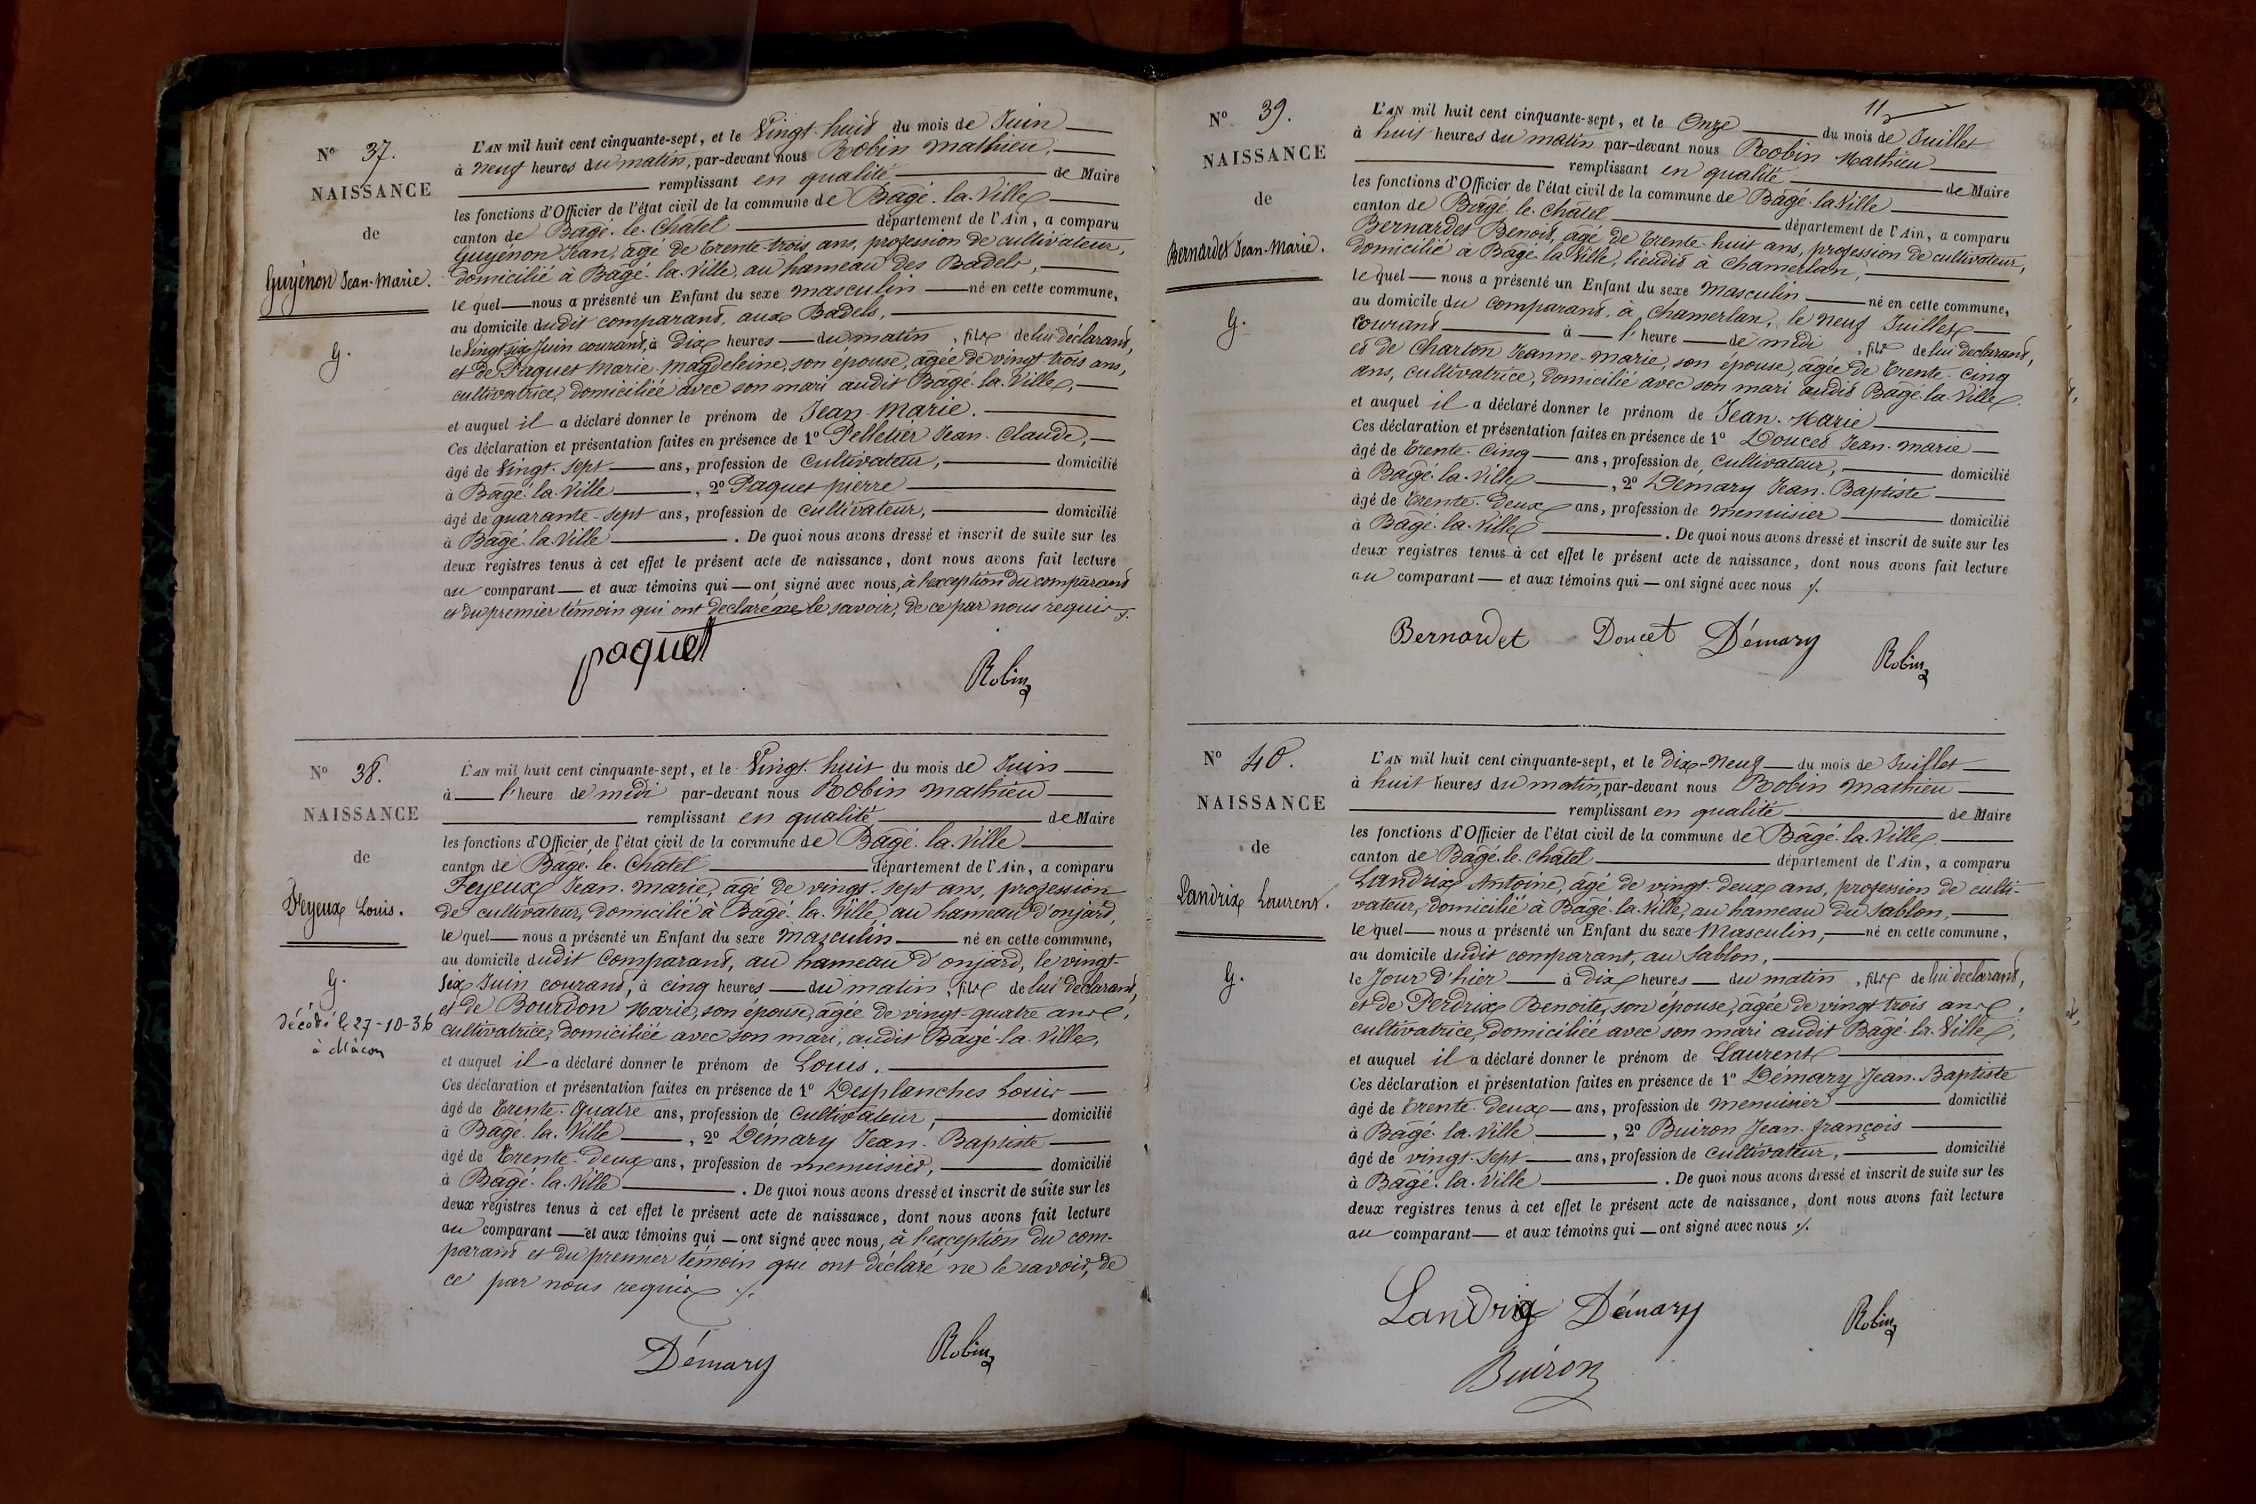 N° 37.
NAISSANCE
de
Guyénon Jean-Marie.
G.
L'AN mil huit cent cinquante-sept, et le Vingt-huit du mois de Juin
à neuf heures du matin, par-devant nous Robin Mathieu,
remplissant en qualité de Maire
les fonctions d'Officier de l'état civil de la commune de Bâgé-la-Ville
canton de Bâgé-le-Châtel département de l'Ain, a comparu
Guyénon Jean, âgé de trente-trois ans, profession de cultivateur,
domicilié à Bâgé-la-Ville, au hameau des Badels,
lequel nous a présenté un Enfant du sexe masculin né en cette commune,
au domicile dudit comparant, aux Badels,
le Vingt-six Juin courant, à Dix heures du matin, fils de lui déclarant,
et de Paquet Marie-Magdeleine, son épouse, âgée de vingt-trois ans,
cultivatrice, domiciliée avec son mari audit Bâgé-la-Ville,
et auquel il a déclaré donner le prénom de Jean-Marie.
Ces déclaration et présentation faites en présence de 1° Pelletier Jean-Claude,
âgé de Vingt-sept ans, profession de cultivateur, domicilié
à Bâgé-la-Ville, 2° Paquet pierre
âgé de quarante-sept ans, profession de cultivateur, domicilié
à Bâgé-la-Ville. De quoi nous avons dressé et inscrit de suite sur les
deux registres tenus à cet effet le présent acte de naissance, dont nous avons fait lecture
au comparant et aux témoins qui ont signé avec nous, à l'exception du comparant
et du premier témoin qui ont déclaré ne le savoir, de ce par nous requis /.
paquet
Robin
N° 38.
NAISSANCE
de
Feyeux Louis.
G.
Décédé le 27-10-36
à Mâcon
L'AN mil huit cent cinquante-sept, et le Vingt-huit du mois de Juin
à l'heure de midi par-devant nous Robin Mathieu
remplissant en qualité de Maire
les fonctions d'Officier de l'état civil de la commune de Bâgé-la-Ville
canton de Bâgé-le-Châtel département de l'Ain, a comparu
Feyeux Jean-Marie, âgé de vingt-sept ans, profession
de cultivateur, domicilié à Bâgé-la-Ville, au hameau d'onjard,
lequel nous a présenté un Enfant du sexe masculin né en cette commune,
au domicile dudit comparant, au hameau d'onjard, le vingt-
six Juin courant, à cinq heures du matin, fils de lui déclarant,
et de Bourdon Marie, son épouse, âgée de vingt-quatre ans,
cultivatrice, domiciliée avec son mari, audit Bâgé-la-Ville,
et auquel il a déclaré donner le prénom de Louis.
Ces déclaration et présentation faites en présence de 1° Desplanches Louis
âgé de trente-quatre ans, profession de cultivateur, domicilié
à Bâgé-la-Ville, 2° Démary Jean-Baptiste
âgé de trente-deux ans, profession de menuisier, domicilié
à Bâgé-la-Ville. De quoi nous avons dressé et inscrit de suite sur les
deux registres tenus à cet effet le présent acte de naissance, dont nous avons fait lecture
au comparant et aux témoins qui ont signé avec nous, à l'exception du com-
parant et du premier témoin qui ont déclaré ne le savoir, de
ce par nous requis /.
Démary
Robin
11
N° 39.
NAISSANCE
de
Bernardet Jean-Marie.
G.
L'AN mil huit cent cinquante-sept, et le Onze du mois de Juillet
à huit heures du matin par-devant nous Robin Mathieu
remplissant en qualité de Maire
les fonctions d'Officier de l'état civil de la commune de Bâgé-la-Ville
canton de Bâgé-le-Châtel département de l'Ain, a comparu
Bernardet Benoit, âgé de trente-huit ans, profession de cultivateur,
domicilié à Bâgé-la-Ville, lieudit à Chamerlan,
lequel nous a présenté un Enfant du sexe Masculin né en cette commune,
au domicile du comparant, à Chamerlan, le neuf Juillet
courant à l'heure de midi, fils de lui déclarant,
et de Charton Jeanne-Marie, son épouse, âgée de trente-cinq
ans, cultivatrice, domicilié avec son mari audit Bâgé-la-Ville
et auquel il a déclaré donner le prénom de Jean-Marie
Ces déclaration et présentation faites en présence de 1° Doucet Jean-Marie
âgé de trente-cinq ans, profession de cultivateur, domicilié
à Bâgé-la-Ville, 2° Démary Jean-Baptiste
âgé de trente-deux ans, profession de menuisier domicilié
à Bâgé-la-Ville. De quoi nous avons dressé et inscrit de suite sur les
deux registres tenus à cet effet le présent acte de naissance, dont nous avons fait lecture
au comparant et aux témoins qui ont signé avec nous /.
Bernardet Doucet Démary
Robin
N° 40.
NAISSANCE
de
Landrix Laurent.
G.
L'AN mil huit cent cinquante-sept, et le dix-neuf du mois de Juillet
à huit heures du matin, par-devant nous Robin Mathieu
remplissant en qualité de Maire
les fonctions d'Officier de l'état civil de la commune de Bâgé-la-Ville
canton de Bâgé-le-Châtel département de l'Ain, a comparu
Landrix Antoine, âgé de vingt-deux ans, profession de culti-
vateur, domicilié à Bâgé-la-Ville, au hameau du Sablon,
lequel nous a présenté un Enfant du sexe Masculin, né en cette commune,
au domicile dudit comparant, au Sablon,
le Jour d'hier à dix heures du matin, fils de lui déclarant,
et de Perdrix Benoite, son épouse, âgée de vingt-trois ans,
cultivatrice, domiciliée avec son mari audit Bâgé-la-Ville,
et auquel il a déclaré donner le prénom de Laurent
Ces déclaration et présentation faites en présence de 1° Démary Jean-Baptiste
âgé de trente-deux ans, profession de menuisier domicilié
à Bâgé-la-Ville, 2° Buiron Jean-françois
âgé de vingt-sept ans, profession de cultivateur, domicilié
à Bâgé-la-Ville. De quoi nous avons dressé et inscrit de suite sur les
deux registres tenus à cet effet le présent acte de naissance, dont nous avons fait lecture
au comparant et aux témoins qui ont signé avec nous /.
Landrix Démary
Robin
Buiron